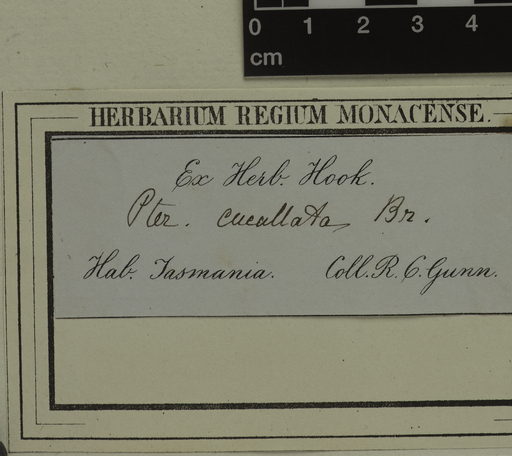 0 1 2 3 4
cm
HERBARIUM REGIUM MONACENSE.
Ex Herb. Hook.
Pter. cucullata Br.
Hab. Tasmania. Coll. R. C. Gunn.